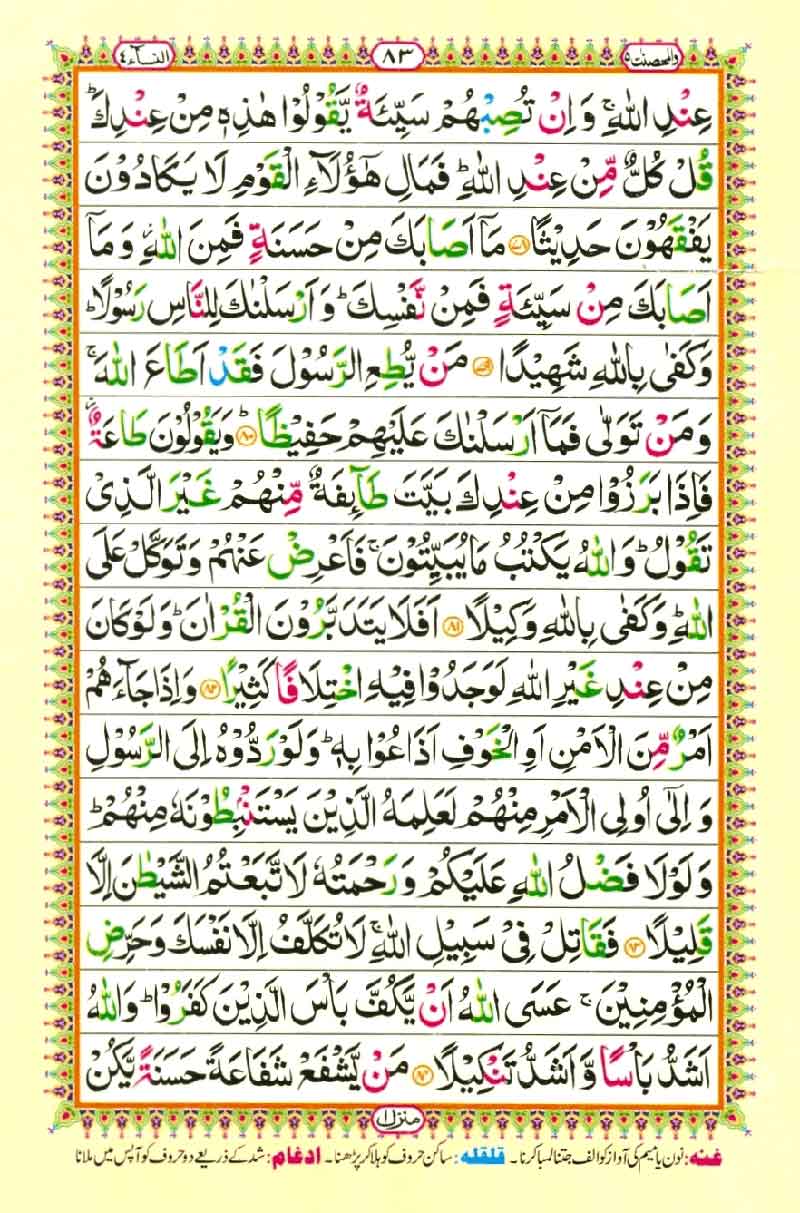 والمحصنت ٥ ٨٣ النساء ٤
عِنْدِ اللّٰهِ ۚ وَ اِنْ تُصِبْهُمْ سَيِّئَةٌ يَّقُوْلُوْا هٰذِهٖ مِنْ عِنْدِكَ ؕ
قُلْ كُلٌّ مِّنْ عِنْدِ اللّٰهِ ؕ فَمَالِ هٰۤؤُلَآءِ الْقَوْمِ لَا يَكَادُوْنَ
يَفْقَهُوْنَ حَدِيْثًا ﴿۷۸﴾ مَاۤ اَصَابَكَ مِنْ حَسَنَةٍ فَمِنَ اللّٰهِ ؗ وَ مَاۤ
اَصَابَكَ مِنْ سَيِّئَةٍ فَمِنْ نَّفْسِكَ ؕ وَ اَرْسَلْنٰكَ لِلنَّاسِ رَسُوْلًا ؕ
وَ كَفٰى بِاللّٰهِ شَهِيْدًا ﴿۷۹﴾ مَنْ يُّطِعِ الرَّسُوْلَ فَقَدْ اَطَاعَ اللّٰهَ ۚ
وَ مَنْ تَوَلّٰى فَمَاۤ اَرْسَلْنٰكَ عَلَيْهِمْ حَفِيْظًا ﴿۸۰﴾ؕ وَ يَقُوْلُوْنَ طَاعَةٌ ؗ
فَاِذَا بَرَزُوْا مِنْ عِنْدِكَ بَيَّتَ طَآىِٕفَةٌ مِّنْهُمْ غَيْرَ الَّذِىْ
تَقُوْلُ ؕ وَ اللّٰهُ يَكْتُبُ مَا يُبَيِّتُوْنَ ۚ فَاَعْرِضْ عَنْهُمْ وَ تَوَكَّلْ عَلَى
اللّٰهِ ؕ وَ كَفٰى بِاللّٰهِ وَكِيْلًا ﴿۸۱﴾ اَفَلَا يَتَدَبَّرُوْنَ الْقُرْاٰنَ ؕ وَ لَوْ كَانَ
مِنْ عِنْدِ غَيْرِ اللّٰهِ لَوَجَدُوْا فِيْهِ اخْتِلَافًا كَثِيْرًا ﴿۸۲﴾ وَ اِذَا جَآءَهُمْ
اَمْرٌ مِّنَ الْاَمْنِ اَوِ الْخَوْفِ اَذَاعُوْا بِهٖ ؕ وَ لَوْ رَدُّوْهُ اِلَى الرَّسُوْلِ
وَ اِلٰۤى اُولِى الْاَمْرِ مِنْهُمْ لَعَلِمَهُ الَّذِيْنَ يَسْتَنْۢبِطُوْنَهٗ مِنْهُمْ ؕ
وَ لَوْ لَا فَضْلُ اللّٰهِ عَلَيْكُمْ وَ رَحْمَتُهٗ لَاتَّبَعْتُمُ الشَّيْطٰنَ اِلَّا
قَلِيْلًا ﴿۸۳﴾ فَقَاتِلْ فِىْ سَبِيْلِ اللّٰهِ ۚ لَا تُكَلَّفُ اِلَّا نَفْسَكَ وَ حَرِّضِ
الْمُؤْمِنِيْنَ ۚ عَسَى اللّٰهُ اَنْ يَّكُفَّ بَاْسَ الَّذِيْنَ كَفَرُوْا ؕ وَ اللّٰهُ
اَشَدُّ بَاْسًا وَّ اَشَدُّ تَنْكِيْلًا ﴿۸۴﴾ مَنْ يَّشْفَعْ شَفَاعَةً حَسَنَةً يَّكُنْ
منزل ١
غنه: نون یا میم کی آواز کو الف جتنا لمبا کرنا۔ قلقله: ساکن حروف کو ہلا کر پڑھنا۔ ادغام: شد کے ذریعے دو حروف کو آپس میں ملانا